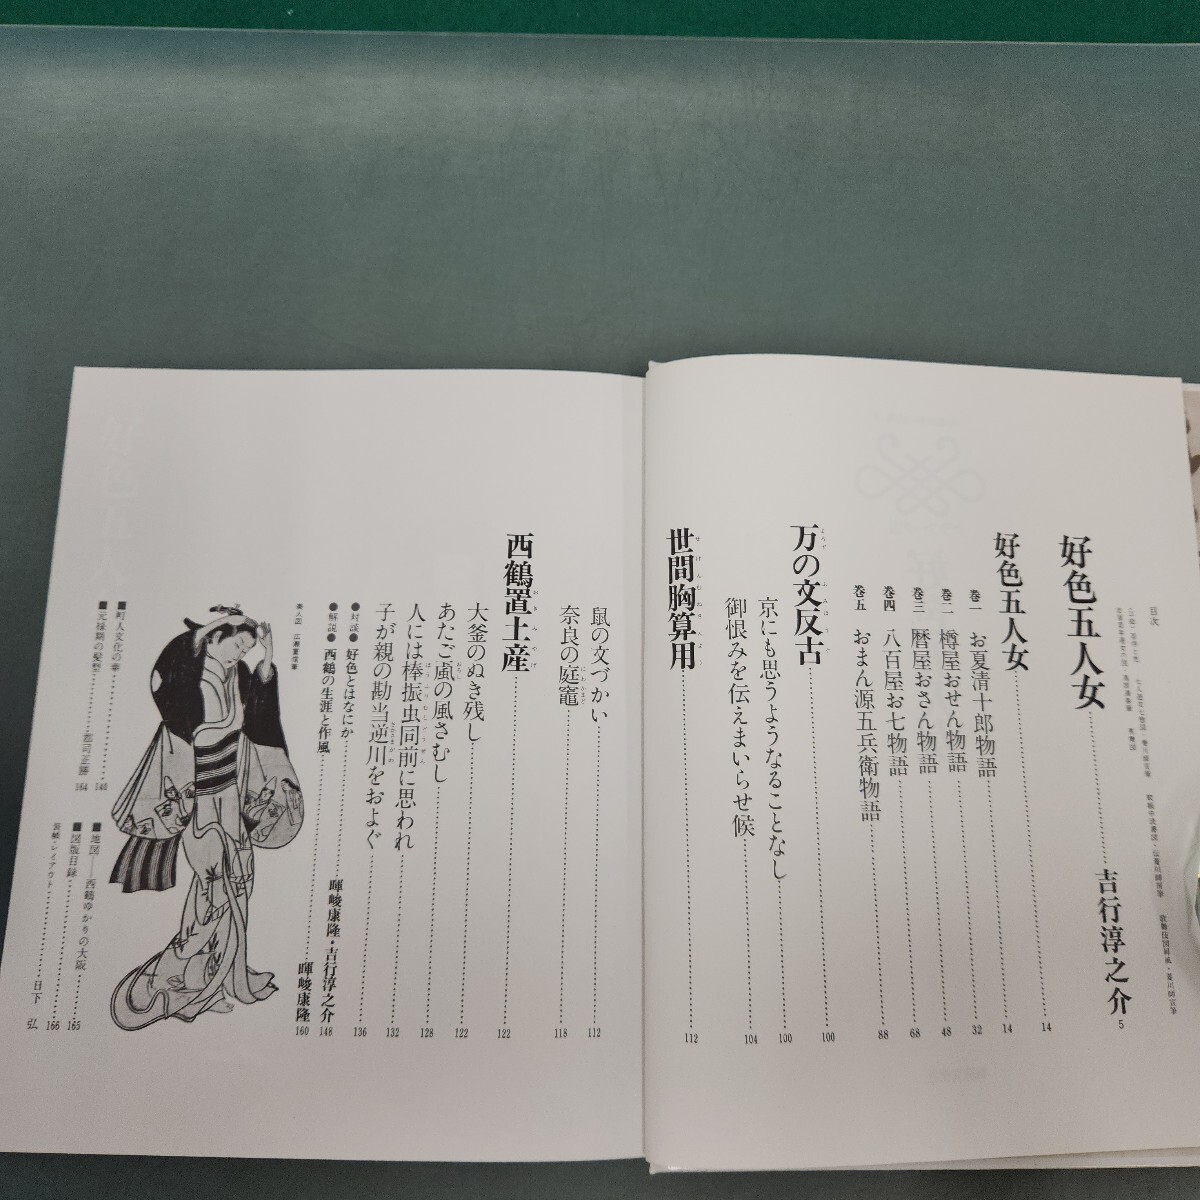 目次
好色五人女……吉行淳之介 5
好色五人女……14
巻一 お夏清十郎物語……14
巻二 樽屋おせん物語……32
巻三 暦屋おさん物語……48
巻四 八百屋お七物語……68
巻五 おまん源五兵衛物語……88
万の文反古……100
京にも思うようなることなし……100
御恨みを伝えまいらせ候……104
世間胸算用……112
鼠の文づかい……112
奈良の庭竈……118
西鶴置土産……122
大釜のぬき残し……122
あたご颪の風さむし……128
人には棒振虫同前に思われ……132
子が親の勘当逆川をおよぐ……136
●対談● 好色とはなにか……暉峻康隆・吉行淳之介 148
●解説● 西鶴の生涯と作風……暉峻康隆 160
■町人文化の華……146
■元禄期の髪型……忍司正勝 164
■地図――西鶴ゆかりの大阪……165
■図版目録……166
装幀・レイアウト……日下 弘